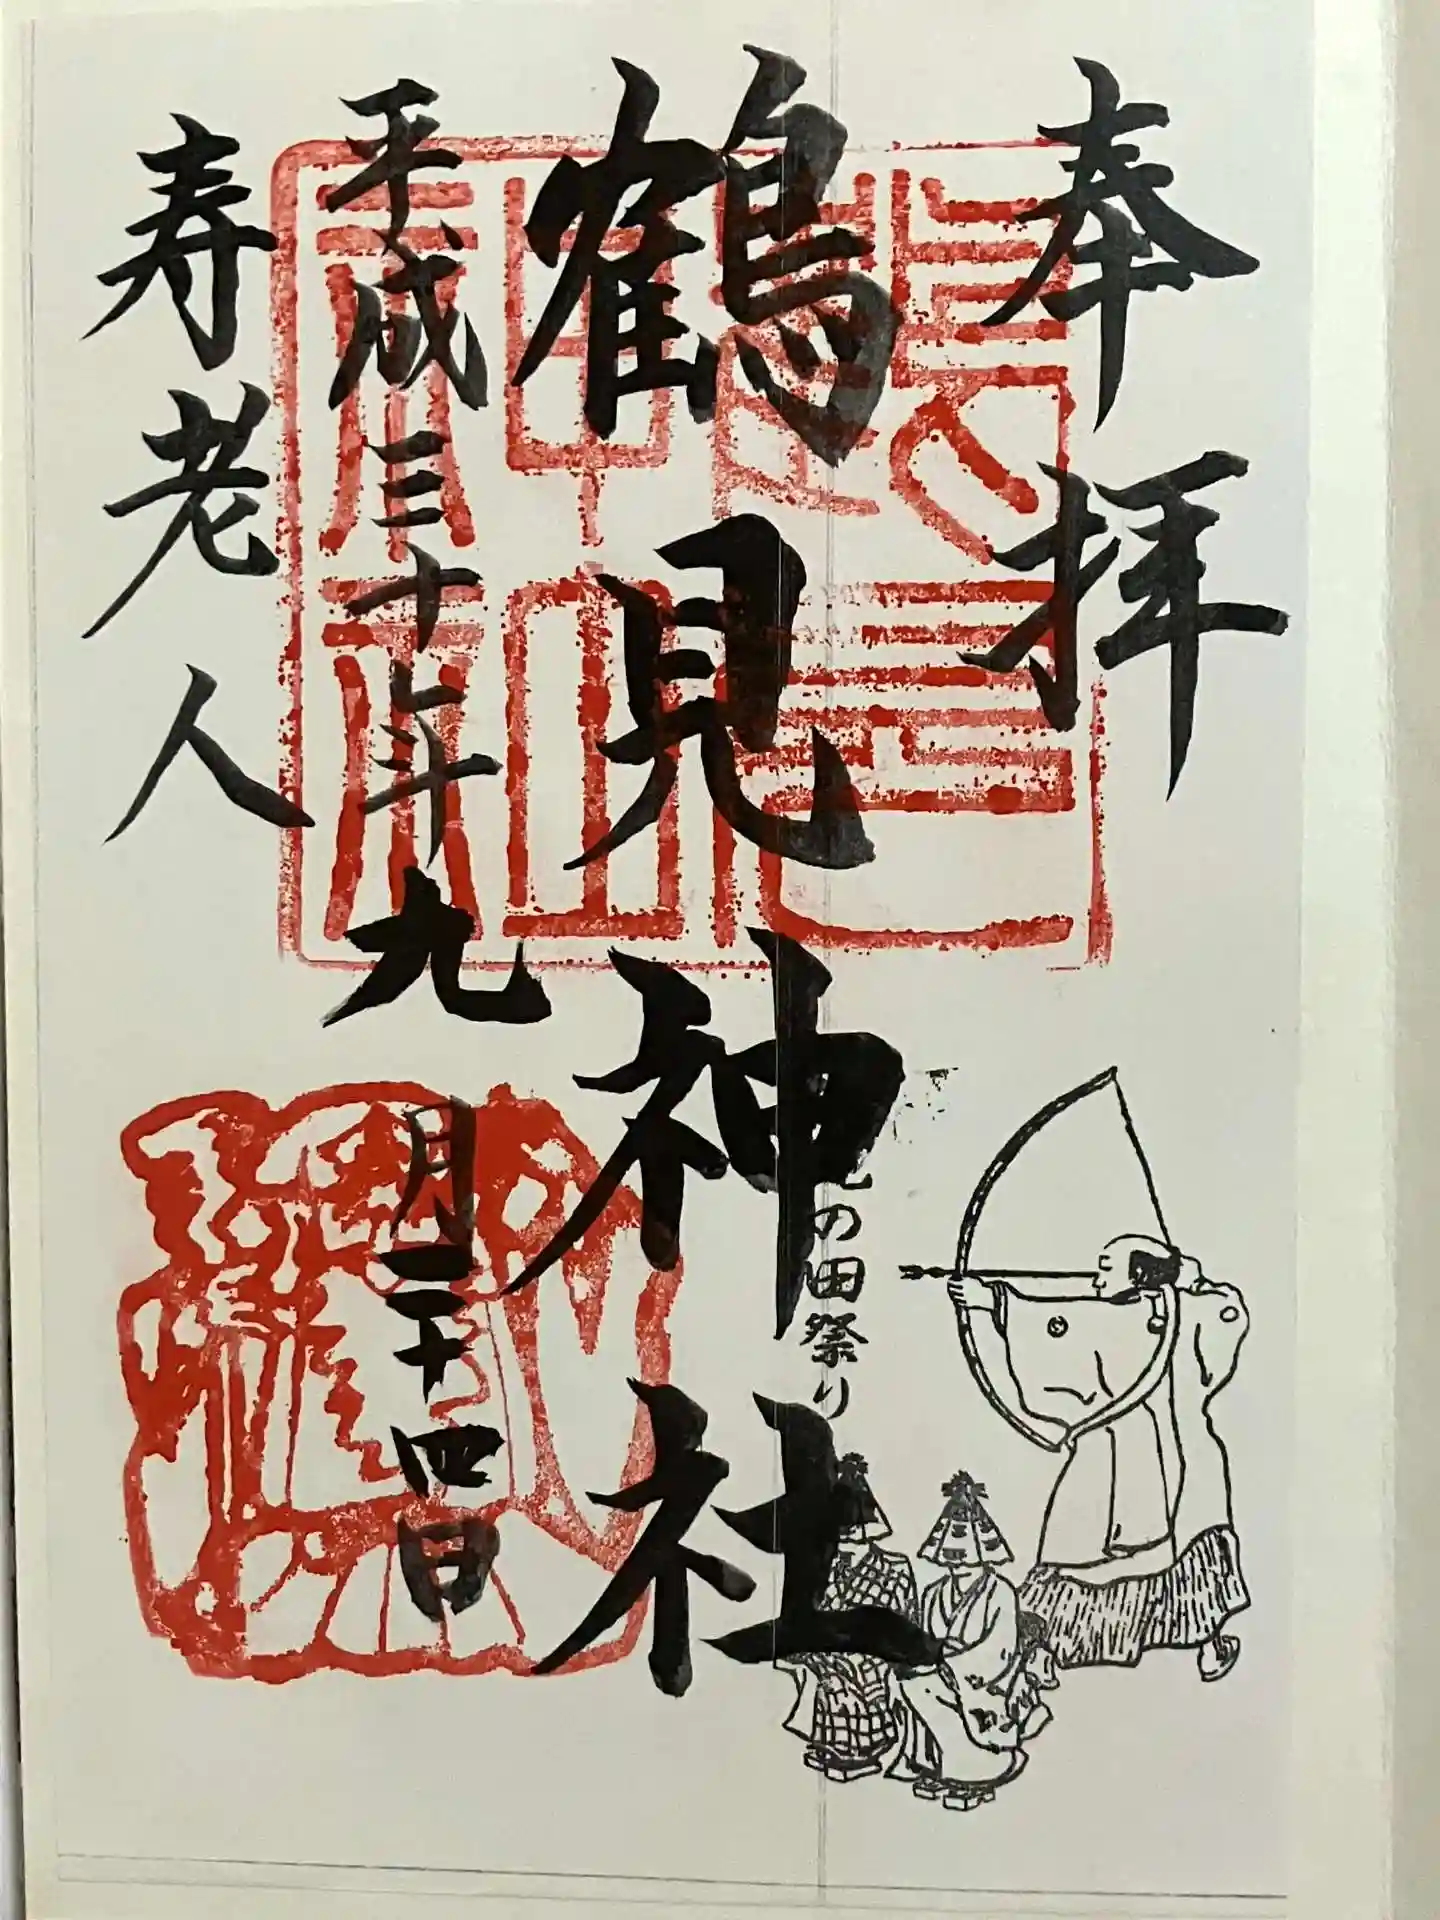 奉拝
鶴見神社
の田祭り
平成三十七年九月二十四日
寿老人